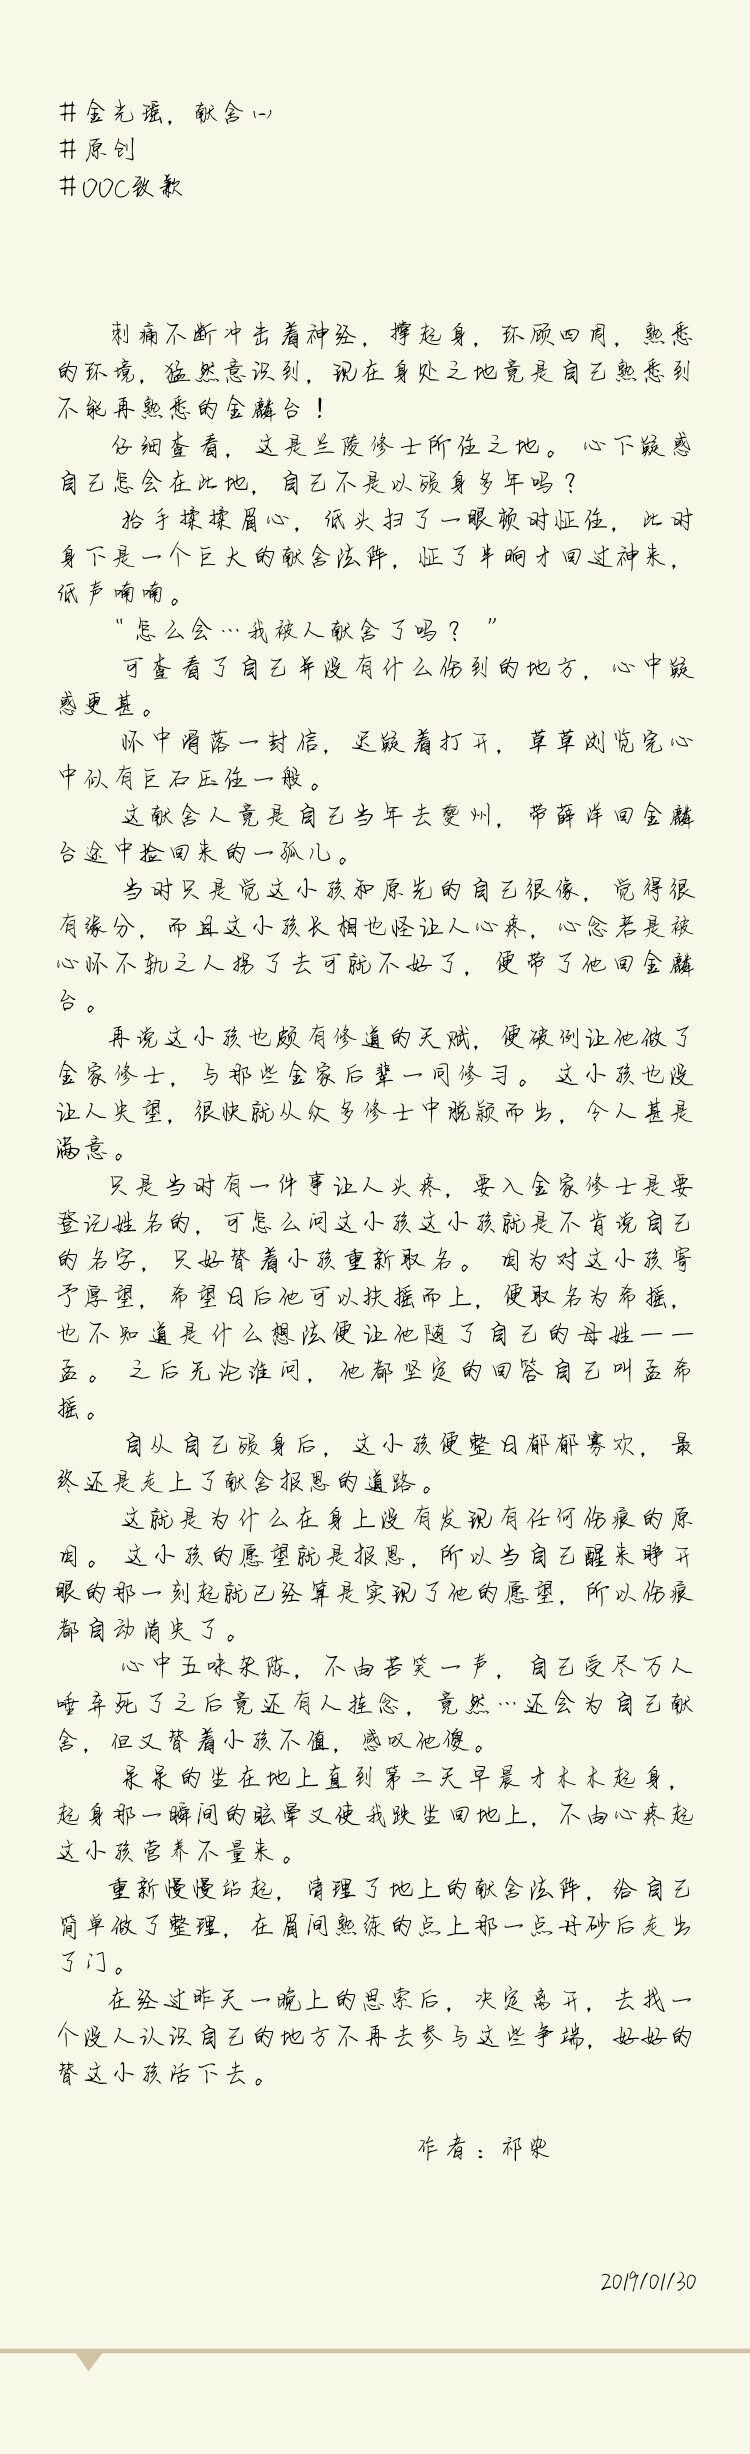 #金光瑶，献舍㈠
#原创
#OOC致歉
刺痛不断冲击着神经，撑起身，环顾四周，熟悉
的环境，猛然意识到，现在身处之地竟是自己熟悉到
不能再熟悉的金麟台！
仔细查看，这是兰陵修士所住之地。心下疑惑
自己怎会在此地，自己不是以殒身多年吗？
抬手揉揉眉心，低头扫了一眼顿时怔住，此时
身下是一个巨大的献舍法阵，怔了半晌才回过神来，
低声喃喃。
“怎么会…我被人献舍了吗？”
可查看了自己并没有什么伤到的地方，心中疑
惑更甚。
怀中滑落一封信，迟疑着打开，草草浏览完心
中似有巨石压住一般。
这献舍人竟是自己当年去夔州，带薛洋回金麟
台途中捡回来的一孤儿。
当时只是觉这小孩和原先的自己很像，觉得很
有缘分，而且这小孩长相也怪让人心疼，心念若是被
心怀不轨之人拐了去可就不好了，便带了他回金麟
台。
再说这小孩也颇有修道的天赋，便破例让他做了
金家修士，与那些金家后辈一同修习。这小孩也没
让人失望，很快就从众多修士中脱颖而出，令人甚是
满意。
只是当时有一件事让人头疼，要入金家修士是要
登记姓名的，可怎么问这小孩这小孩就是不肯说自己
的名字，只好替着小孩重新取名。因为对这小孩寄
予厚望，希望日后他可以扶摇而上，便取名为希摇，
也不知道是什么想法便让他随了自己的母姓——
孟。之后无论谁问，他都坚定的回答自己叫孟希
摇。
自从自己殒身后，这小孩便整日郁郁寡欢，最
终还是走上了献舍报恩的道路。
这就是为什么在身上没有发现有任何伤痕的原
因。这小孩的愿望就是报恩，所以当自己醒来睁开
眼的那一刻起就已经算是实现了他的愿望，所以伤痕
都自动消失了。
心中五味杂陈，不由苦笑一声，自己受尽万人
唾弃死了之后竟还有人挂念，竟然…还会为自己献
舍，但又替着小孩不值，感叹他傻。
呆呆的坐在地上直到第二天早晨才木木起身，
起身那一瞬间的眩晕又使我跌坐回地上，不由心疼起
这小孩营养不量来。
重新慢慢站起，清理了地上的献舍法阵，给自己
简单做了整理，在眉间熟练的点上那一点丹砂后走出
了门。
在经过昨天一晚上的思索后，决定离开，去找一
个没人认识自己的地方不再去参与这些争端，好好的
替这小孩活下去。
作者：祁染
2019/01/30